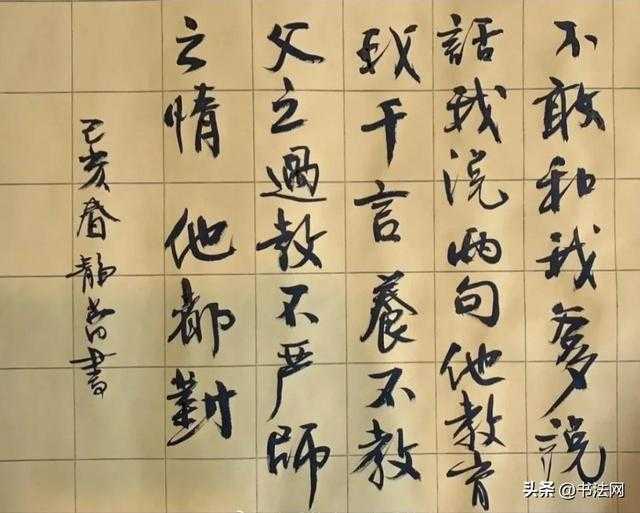 不敢和我爹説
話我説兩句他教育
我千言養不教
父之過教不严師
之惰 他都對
己亥春静香書
头条 @书法网